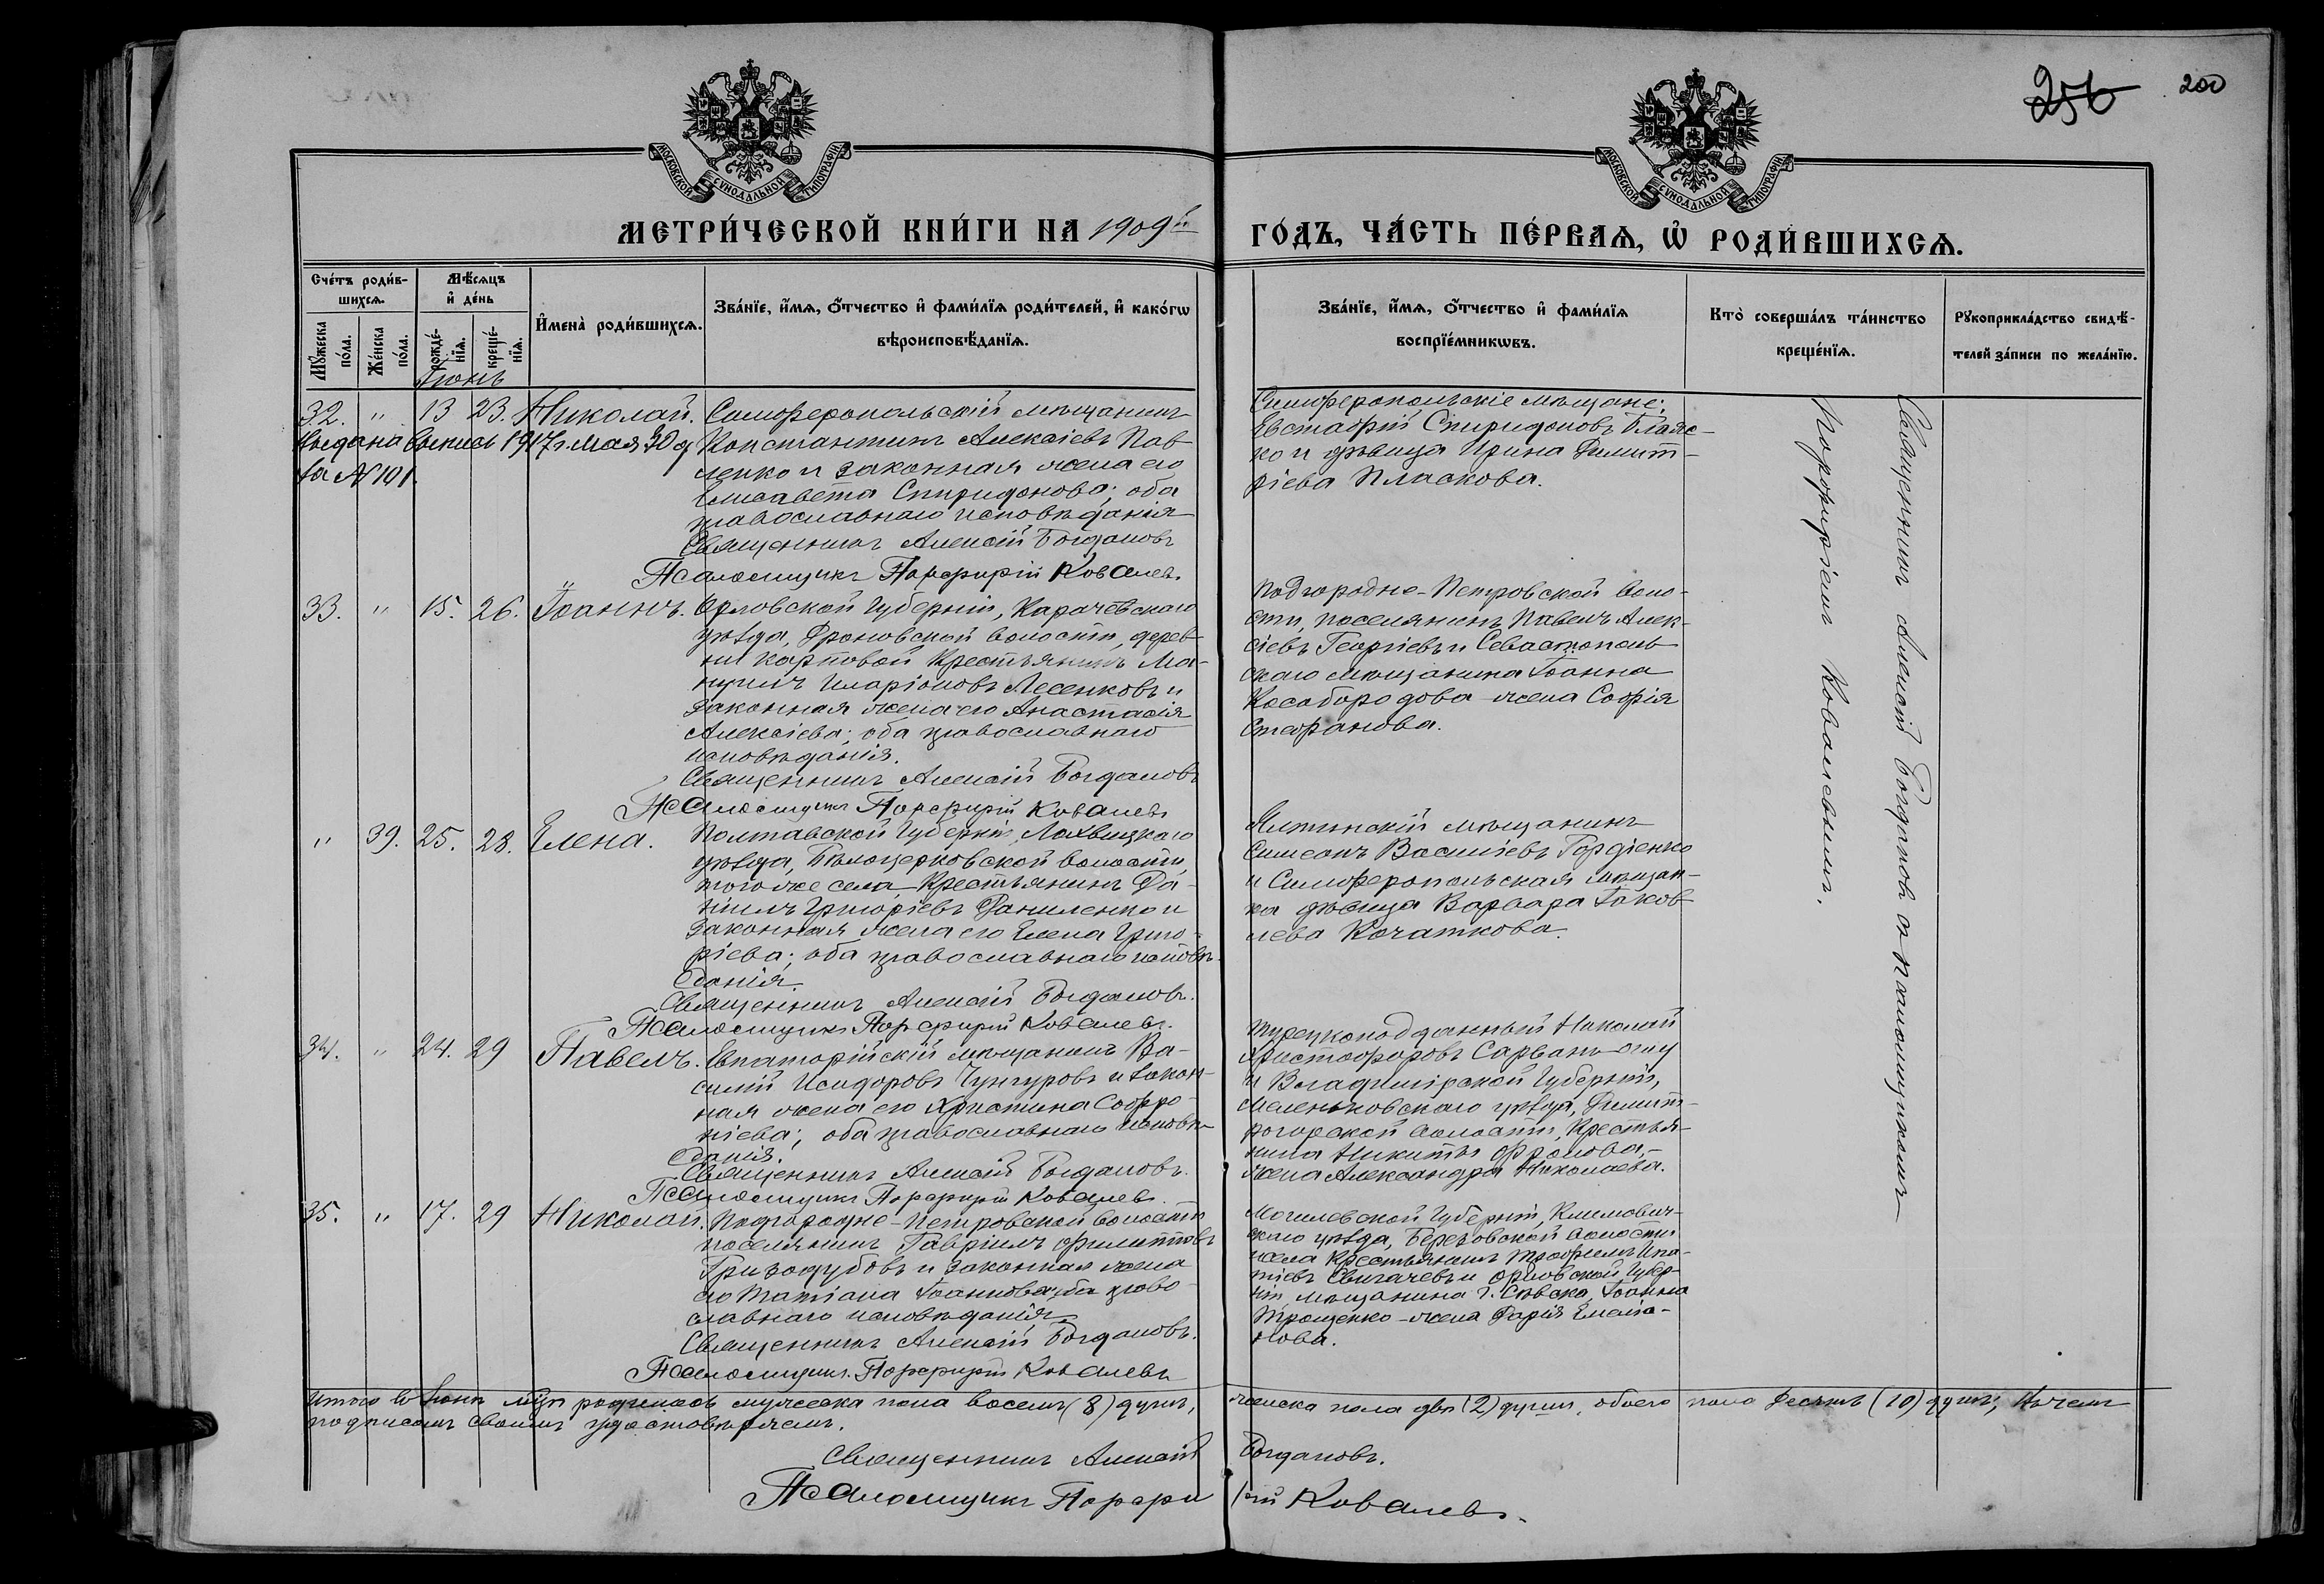 256 200
МОСКОВСКОЙ СѴНОДАЛЬНОЙ ТИПОГРАФІИ
МОСКОВСКОЙ СѴНОДАЛЬНОЙ ТИПОГРАФІИ
МЕТРИ́ЧЕСКОЙ КНИ́ГИ НА 1909й
ГО́ДЪ, ЧА́СТЬ ПЕ́РВАѦ, Ѡ҆ РОДИ́ВШИХСѦ.
Сче́тъ роди́в-
шихсѧ.
Мꙋ́жеска
по́ла.
Же́нска
по́ла.
Мѣ́сѧцъ
и҆ де́нь
рожде́-
нїѧ.
креще́-
нїѧ.
И҆мена̀ роди́вшихсѧ.
Зва́нїе, и҆́мѧ, ѻ҆́тчество и҆ фами́лїѧ роди́телей, и҆ како́гѡ
вѣроисповѣ́данїѧ.
Зва́нїе, и҆́мѧ, ѻ҆́тчество и҆ фами́лїѧ
воспрїе́мникѡвъ.
Кто̀ соверша́лъ та́инство
креще́нїѧ.
Рꙋкоприкла́дство свидѣ́-
телей за́писи по жела́нїю.
Іюнь
32. " 13 23. Николай. Симферопольскій мѣщанинъ
Константинъ Алексіевъ Пав-
ленко и законная жена его
Елисавета Спиридонова; оба
православнаго исповѣданія
Священникъ Алексій Богдановъ
Псаломщикъ Порфирій Ковалевъ.
Выдана выпись 1917 г. мая 30 д.
за № 101.
Симферопольскіе мѣщане:
Евстафій Спиридоновъ Пляс-
ко и дѣвица Ирина Димит-
ріева Пласкова.
33. " 15. 26. Іоаннъ. Орловской губерніи, Карачевскаго
уѣзда, Дроновской волости, дерев-
ни Карповой крестьянинъ Ма-
нуилъ Иларіоновъ Лесенковъ и
законная жена его Анастасія
Алексіева; оба православнаго
исповѣданія.
Священникъ Алексій Богдановъ
Псаломщикъ Порфирій Ковалевъ
Подгородне-Петровской воло-
сти, поселянинъ Павелъ Алек-
сіевъ Георгіевъ и Севастополь-
скаго мѣщанина Іоанна
Кособородова жена Софія
Стефанова.
" 39. 25. 28. Елена. Полтавской губерніи, Лохвицкаго
уѣзда, Бѣлоцерковской волости,
того же села, крестьянинъ Да-
ніилъ Григоріевъ Даниленко и
законная жена его Елена Григо-
ріева; оба православнаго исповѣ-
данія.
Священникъ Алексій Богдановъ.
Псаломщикъ Порфирій Ковалевъ.
Ялтинскій мѣщанинъ
Симеонъ Василіевъ Гордіенко
и Симферопольская мѣщан-
ка дѣвица Варвара Іаков-
лева Кочаткова.
34. " 24. 29 Павелъ. Евпаторійскій мѣщанинъ Ва-
силій Исидоровъ Чунгуровъ и закон-
ная жена его Христина Софро-
ніева; оба православнаго исповѣ-
данія.
Священникъ Алексій Богдановъ.
Псаломщикъ Порфирій Ковалевъ.
Турецкоподданный Николай
Христофоровъ Сарванъ-оглу
и Владимірской губерніи,
Меленковскаго уѣзда, Димит-
рогорской волости, крестья-
нина Никиты Фролова,-
жена Александра Николаева.
35. " 17. 29 Николай. Подгородне-Петровской волости
поселянинъ Гавріилъ Филипповъ
Гризодубовъ и законная жена
его Татіана Іоаннова; оба право-
славнаго исповѣданія
Священникъ Алексій Богдановъ.
Псаломщикъ Порфирій Ковалевъ
Могилевской губерніи, Климович-
скаго уѣзда, Березовской волости
села крестьянинъ Трофимъ Ипа-
тіевъ Свигачевъ и Орловской губер-
ніи мѣщанина г. Сѣвска, Іоанна
Трощенко - жена Дарія Емелiа-
нова.
Священникъ Алексій Богдановъ съ псаломщикомъ
Порфиріемъ Ковалевымъ.
Итого въ Іюнѣ м-цѣ родилось мужеска пола восемь (8) душъ, женска пола двѣ (2) души, обоего пола десять (10) душъ; въ чемъ
подписомъ своимъ удостовѣряемъ.
Священникъ Алексій Богдановъ.
Псаломщикъ Порфирій Ковалевъ.